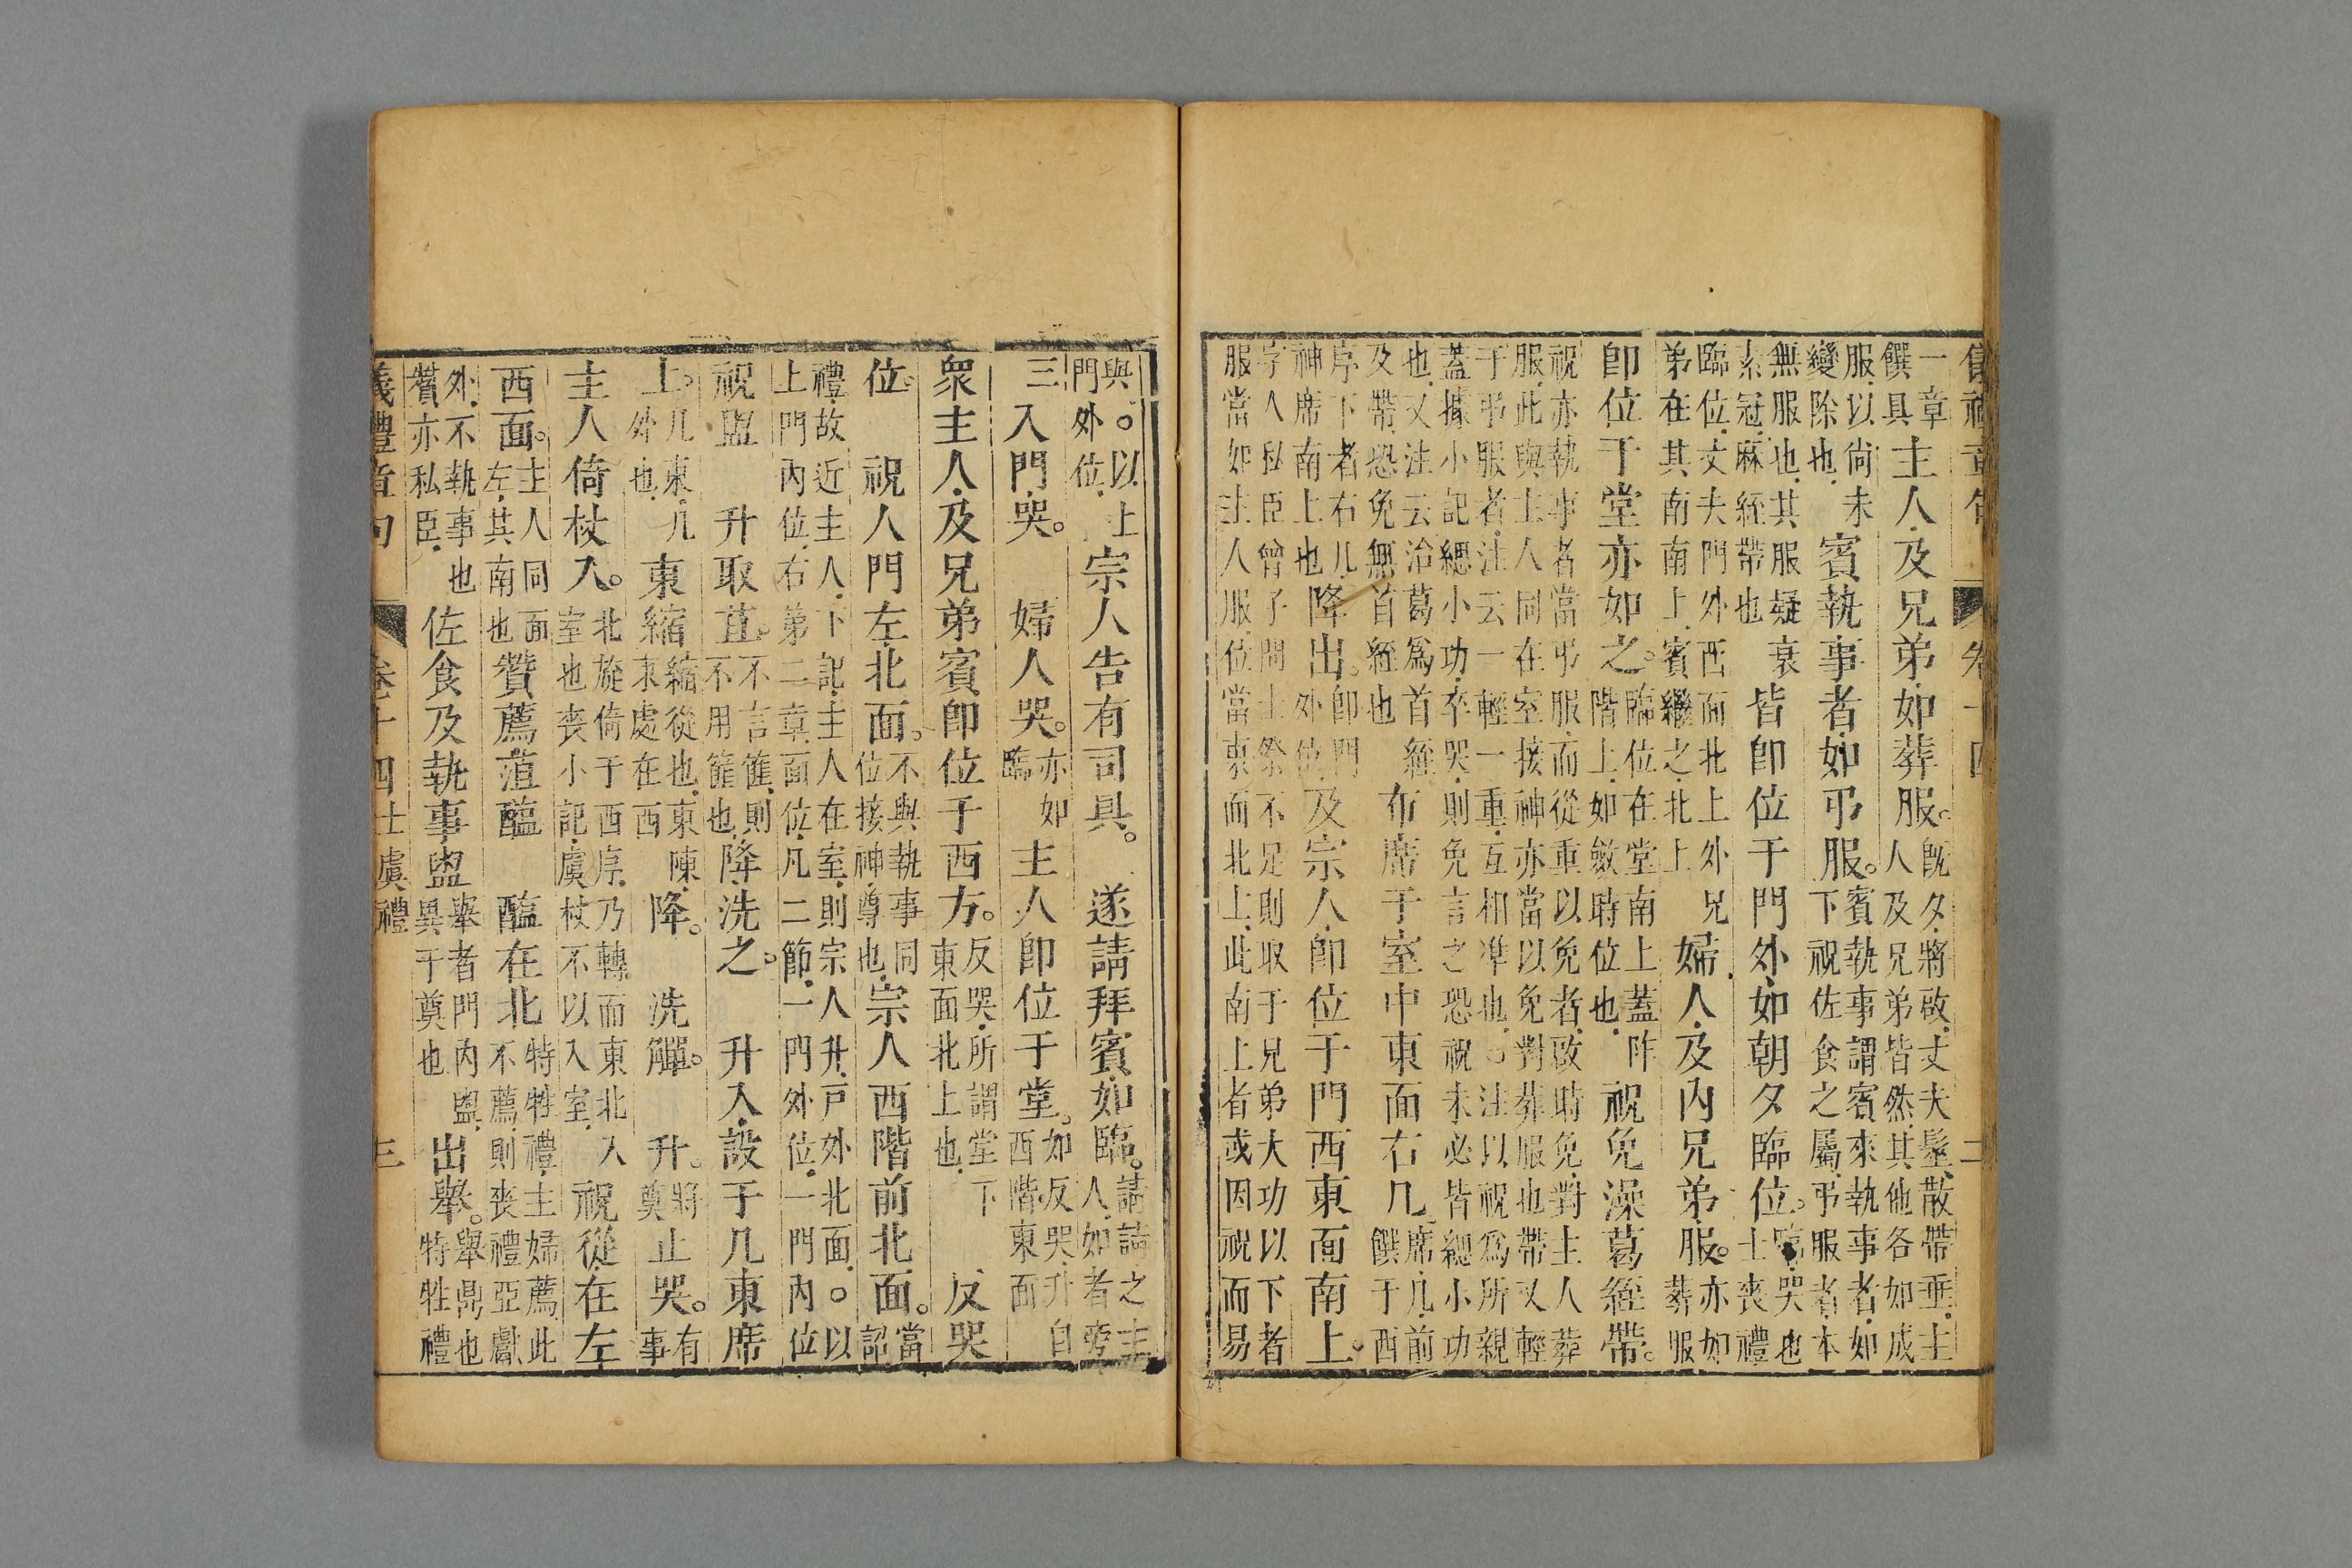 儀禮章句 卷十四 二
一章
饌具
主人及兄弟如葬服。
既夕將啟丈夫髽散帶垂主
人及兄弟皆然其他各如成
服以尚未
變除也
賓執事者如弔服。
賓執事謂賓來執事者如
下視佐食之屬弔服者本
無服也其服疑衰
素冠麻絰帶也
皆卽位于門外如朝夕臨位。
臨哭也
士喪禮
臨位丈夫門外西面北上外兄
弟在其南南上賓繼之北上
婦人及內兄弟服。
亦如
葬服
卽位于堂亦如之。
臨位在堂南上蓋阼
階上如斂時位也
祝免澡葛絰帶。
祝亦執事者當弔服而從重以免者啟時免對主人葬
服此與主人同在室接神亦當以免對葬服也帶又輕
于弔服者注云一輕一重互相準也。注以祝爲所親
蓋據小記緦小功卒哭則免言之恐祝未必皆緦小功
也又注云治葛爲首絰
及帶恐免無首絰也
布席于室中東面右几
席几前
饌于西
序下者右几
神席南上也
降出。
卽門
外位
及宗人卽位于門西東面南上。
字人私臣曾子問士祭不足則取于兄弟大功以下者
服當如主人服位當東而北上此南上者或因祝而易
與。以上
門外位
宗人告有司具。遂請拜賓如臨。
請請之主
人如者旁
三入門哭。婦人哭。
亦如
臨
主人卽位于堂。
如反哭升自
西階東面
眾主人及兄弟賓卽位于西方。
反哭所謂堂下
東面北上也
反哭
位。祝入門左北面。
不與執事同
位接神尊也
宗人西階前北面。
當
詔
禮故近主人下記主人在室則宗人升戶外北面。以
上門內位右第二章面位凡二節一門外位一門內位
祝盥升取苴。
不言篚則
不用篚也
降洗之。升入設于几東席
上。
几東几
外也
東縮
縮從也東陳
末處在西
降。洗觶。升。
將
奠
止哭。
有
事
主人倚杖入。
北旋倚于西序乃轉而東北入
室也喪小記虞杖不以入室
祝從在左
西面。
主人同面
左其南也
贊薦菹醢醢在北
特牲禮主婦薦此
不薦則喪禮亞獻
外不執事也
贊亦私臣
佐食及執事盥
舉者門內盥
異于奠也
出舉。
舉鼎也
特牲禮
儀禮章句 卷十四士虞禮 三